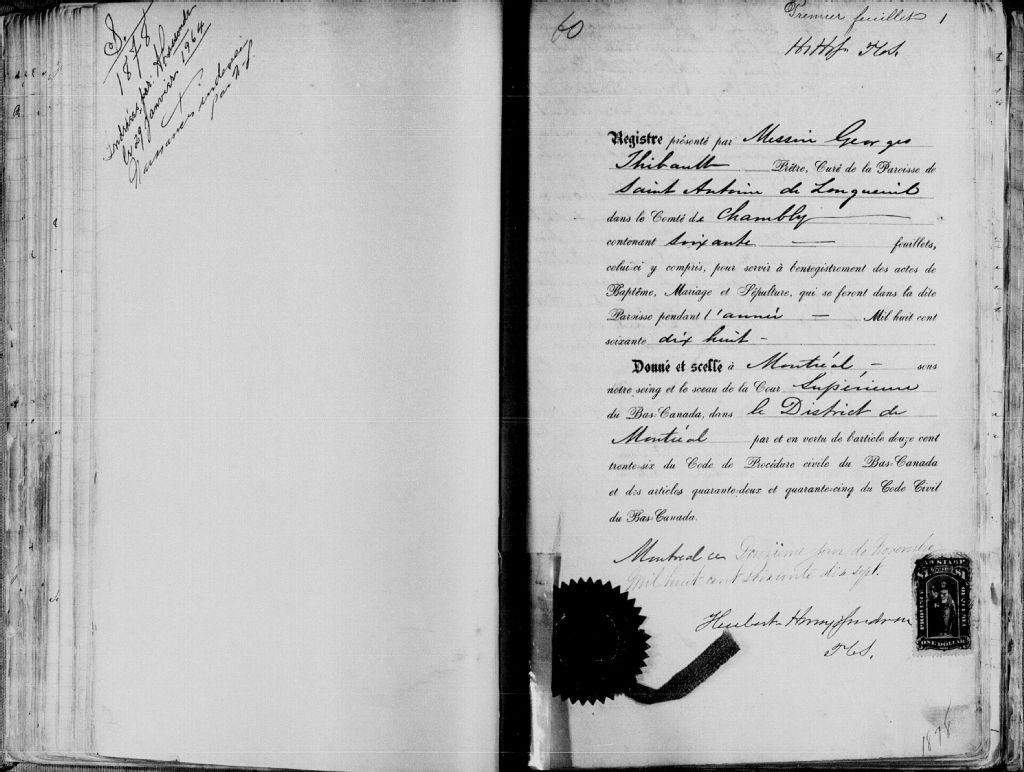 S.
1878
le 29 Janvier 1964
par
60
Premier feuillet 1
Registre présenté par Messire Georges
Thibault Prêtre, Curé de la Paroisse de
Saint Antoine de Longueuil
dans le Comté de Chambly
contenant soixante feuillets,
celui-ci y compris, pour servir à l'enregistrement des actes de
Baptême, Mariage et Sépulture, qui se feront dans la dite
Paroisse pendant l'année Mil huit cent
soixante dix huit
Donné et scellé à Montréal, sous
notre seing et le sceau de la Cour Supérieure
du Bas-Canada, dans le District de
Montréal par et en vertu de l'article douze cent
trente-six du Code de Procédure civile du Bas-Canada
et des articles quarante-deux et quarante-cinq du Code Civil
du Bas-Canada.
Montreal ce Douzième jour de Novembre
Mil huit cent soixante dix sept.
LAW STAMP
$1 $1
PROVINCE
OF QUEBEC
ONE DOLLAR
1878